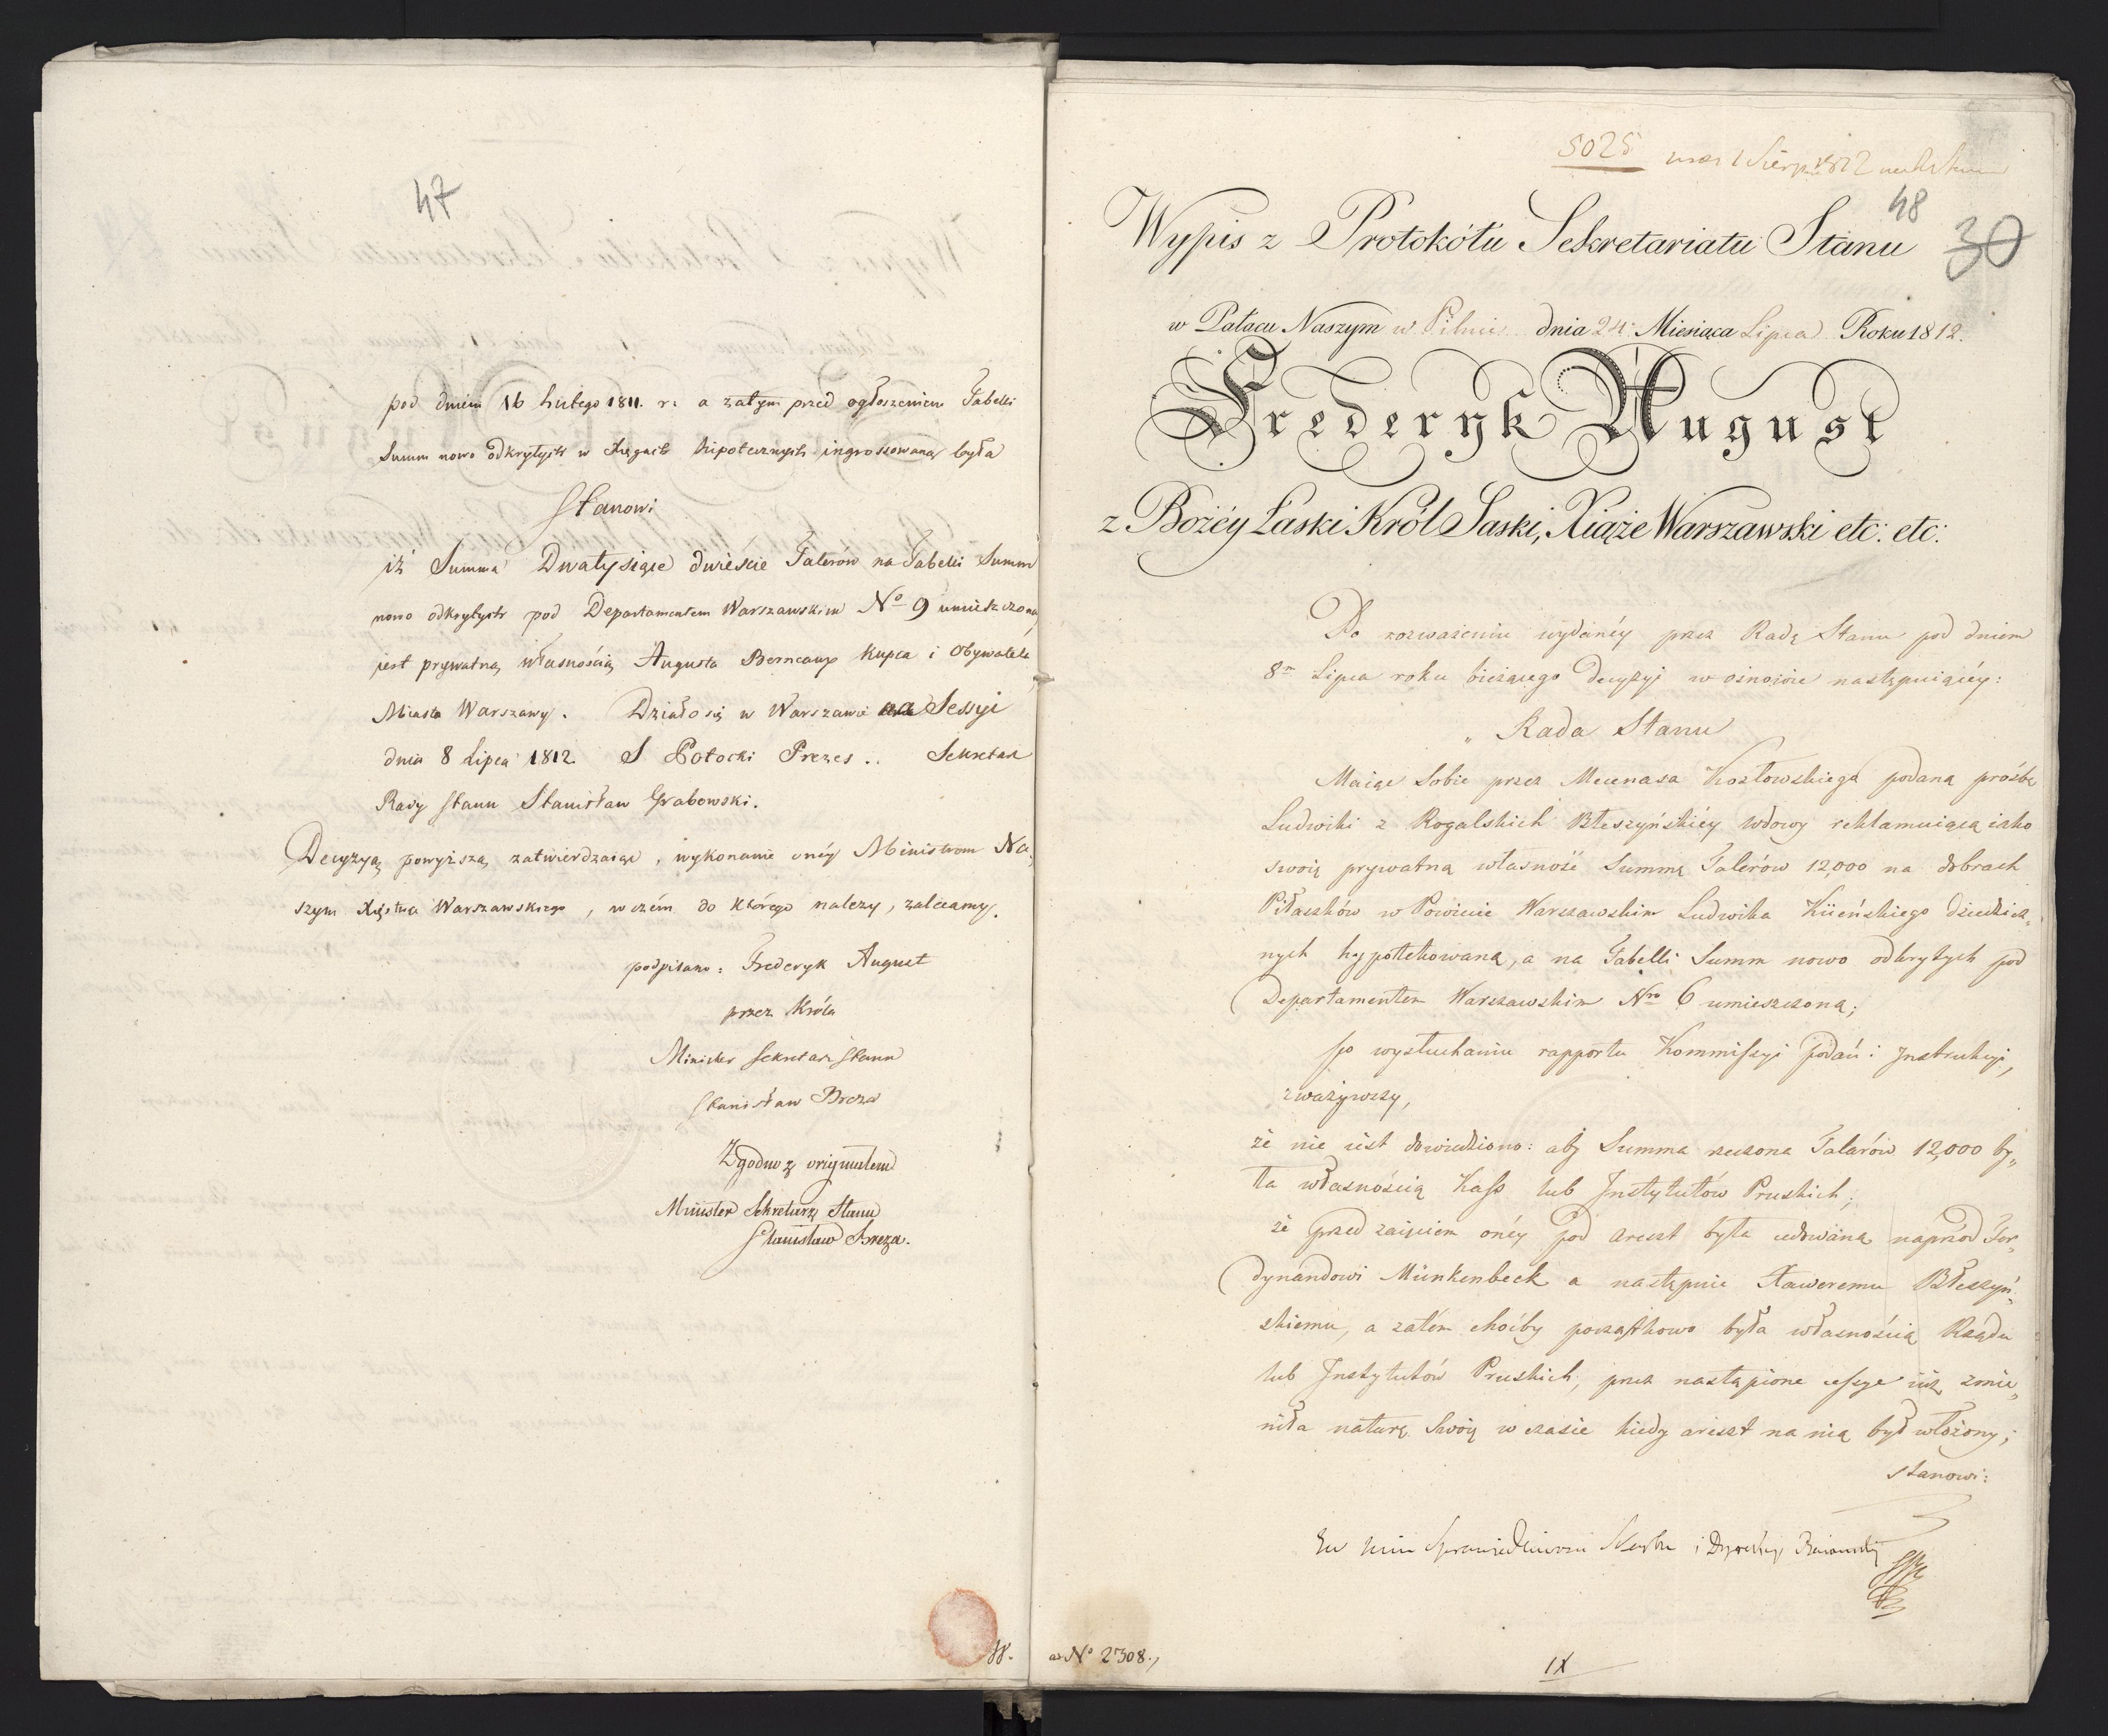 47
pod dniem 16 Lutego 1811. r. a zatym przed ogłoszeniem Tabelli
Summ nowo odkrytych w Xięgach hipotecznych ingrossowaną była
Stanowi
iż Summa Dwatysiące dwieście Talerów na Tabelli Summ
nowo odkrytych pod Departamentem Warszawskim No 9 umieszczona
jest prywatną własnością Augusta Berncaux Kupca i Obywatela
Miasta Warszawy. Działo się w Warszawie na Sessyi
dnia 8 Lipca 1812. S Potocki Prezes.. Sekretarz
Rady Stanu Stanisław Grabowski.
Decyzyą powyższą zatwierdzaiąc, wykonanie onéy Ministrom Na„
szym Xięstwa Warszawskiego, w czém do którego należy, zalecamy.
podpisano: Frederyk August
przez Króla
Minister Sekretarz Stanu
Stanisław Breza
Zgodno z oryginałem
Minister Sekretarz Stanu
Stanisław Breza.
5025 1 Sierp. 1812
48
30
Wypis z Protokółu Sekretariatu Stanu
w Pałacu Naszym w Pilnic dnia 24. Miesiąca Lipca Roku 1812.
Frederyk August
z Bożéy Łaski Król Saski, Xiąże Warszawski etc: etc:
Po rozważeniu wydanéy przez Radę Stanu pod dniem
8m Lipca roku bieżącego decyzyi w osnowie następuiącéy:
„ Rada Stanu
Maiąc sobie przez Mecenasa Kozłowskiego podaną prośbę
Ludwiki z Rogalskich Błeszyńskiéy wdowy reklamuiącą iako
swoią prywatną własność Summę Talerów 12,000 na dobrach
Pilaszków w Powiecie Warszawskim Ludwika Kiieńskiego dziedzicz„
nych hypotekowaną, a na Tabelli Summ nowo odkrytych pod
Departamentem Warszawskim Nro 6 umieszczoną;
po wysłuchaniu rapportu Kommissyi Podań i Instrukcyi,
zważywszy,
że nie iest dowiedziono: aby Summa rzeczona Talarów 12,000 by„
ła własnością Kass lub Instytutów Pruskich;
że przed zaięciem onéy pod areszt była cedowaną naprzód Fer„
dynandowi Münkenbeck a następnie Xaweremu Błeszyń„
skiemu, a zatém choćby początkowo była własnością Rządu
lub Instytutów Pruskich, przez nastąpione cessye iuż zmie„
niła naturę swoią w czasie kiedy areszt na nią był włożony;
stanowi:
Do Min Sprawiedliwości Skarbu i
No 2308.
IX